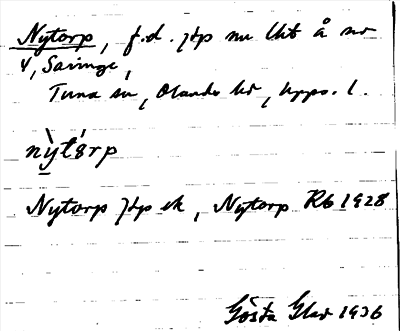 Nytorp, f.d. jtp nu lht å nr
4, Savinge,
Tuna sn, Olands hd, Upps. l.
nỳtórp
Nytorp jtp ek, Nytorp Rb 1928
Gösta Glad 1936